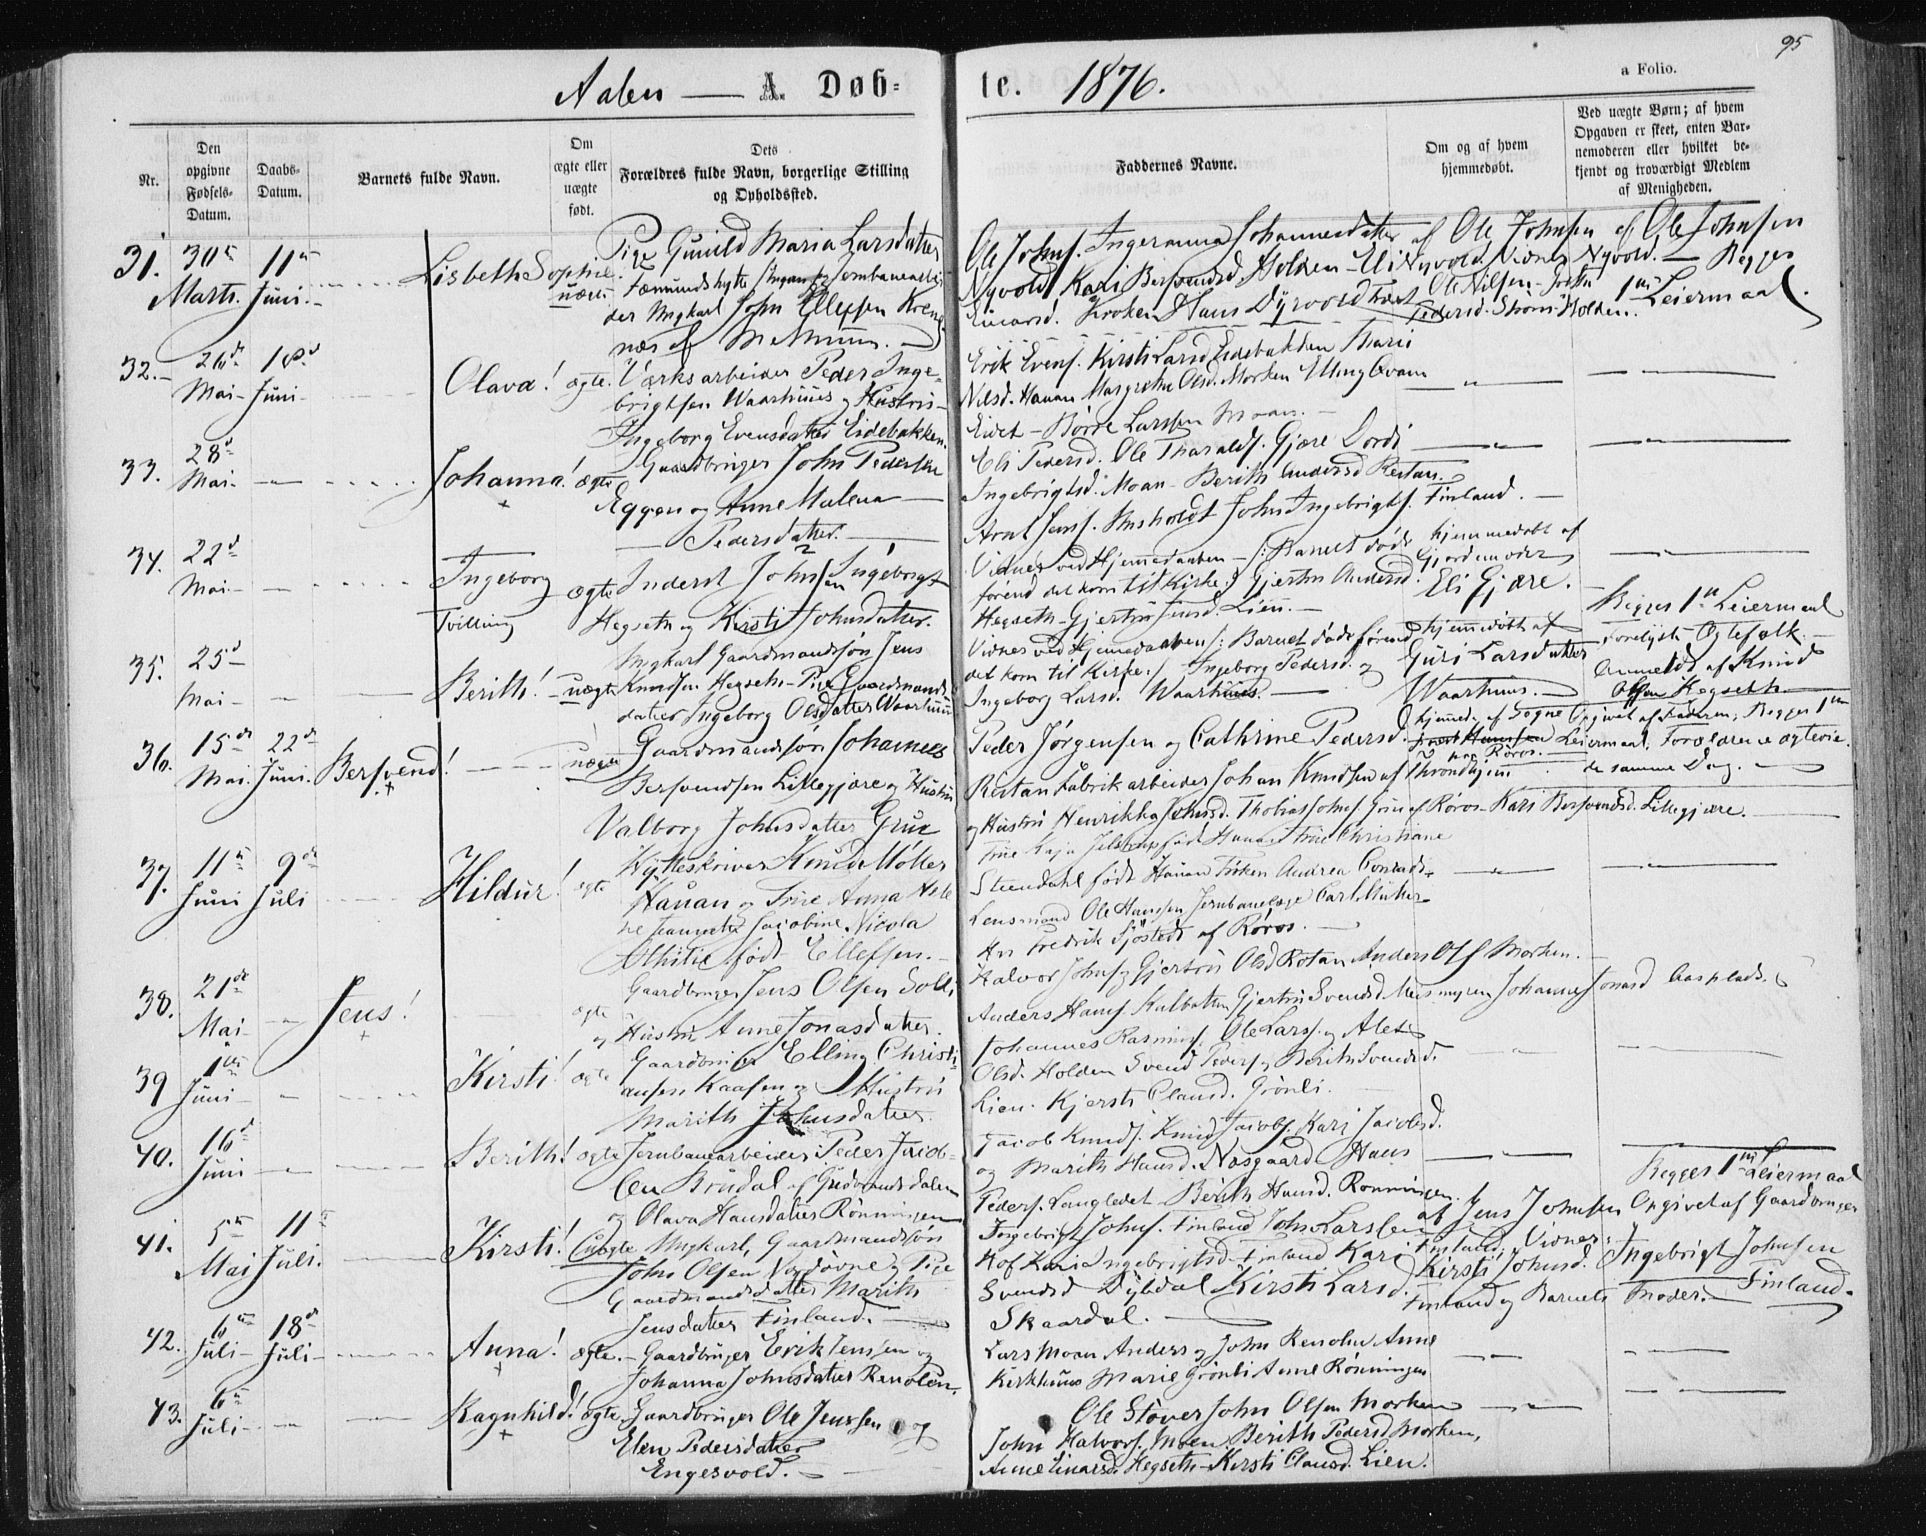 95
Aalen — A. Døb=
te. 1876.
a Folio.
Nr.
Den opgivne Fødsels-Datum.
Daabs-Datum.
Barnets fulde Navn.
Om ægte eller uægte født.
Dets Forældres fulde Navn, borgerlige Stilling og Opholdssted.
Faddernes Navne.
Om og af hvem hjemmedøbt.
Ved uægte Børn; af hvem Opgaven er skeet, enten Barnemoderen eller hvilket bekjendt og troværdigt Medlem af Menigheden.
31. 30te Marts. 11te Juni. Lisbeth Sophie. uægte
Pige Gunild Maria Larsdatter
der Ungkarl John Ellefsen
Ole Johns. Ingeranna Johannesdatter af Ole Johnsen af Ole Johnsen
Nyvold Kari Bersvendsd. Holden - Eli Nyvold. Vidner Nyvold. — Begges
Einarsd. Kroken Hans Dyrvold Ole Nilsen 1ste Leiermaal.
Pedersd. Holden.
32. 26de Mai 18de Juni Olava! ægte.
Værksarbeider Peder Inge=
brigtsen Waarhuus og Hustru
Ingeborg Evensdatter Eidebakken.
Erik Evens. Kirsti Larsd. Eidebakken Mari
Nilsd. Hauan Margrethe Olsd. Morken Elling
Eidet - Børre Larssen Moan. —
33. 28de Mai Johanna! ægte
Gaardbruger John Pedersen
Eggen og Anne Malena
Pedersdatter.
Eli Pedersd. Ole Tharalds. Gjære Dordi
Ingebrigtsd. Moan - Berith Andersd. Reitan.
Arnt Jens. John Ingebrigts. Finland. —
34. 22de Mai Ingeborg Tvilling ægte
Inderst Johnsen Ingebrigt
Hegseth og Kirsti Johnsdatter.
Vidner ved Hjemmedaaben — /: Barnet døde
førend det kom til Kirke:/ Gjertru Andersd.
Hegseth - Gjertru Jensd. Lien. —
hjemmedøbt af
Gjordemoder
Eli Gjære.
35. 25de Mai Berith! uægte
Ungkarl Gaardmandssøn Jens
Knudsen Hegseth - Pige Gaardmands
datter Ingeborg Olsdatter Waarhuus
Vidner ved Hjemmedaaben /: Barnet døde førend
det kom til Kirke:/ Ingeborg Pedersd. og
Ingeborg Larsd. Waarhuus. —
hjemmedøbt af
Guri Larsdatter
Waarhuus. —
Begges 1ste Leiermaal
Forelyste Ægtefolk. —
Anmeldt af Knud
Olsen Hegseth
36. 15de Mai. 22de Juni. Bersvend! uægte
Gaardmandssøn Johannes
Bersvendsen Lillegjære og Hustru
Valborg Johnsdatter Grue
Peder Jørgensen og Cathrine Pedersd.
Reitan Fabrikarbeider Johan Knudsen af Throndhjem
og Hustru Henrikka Johnsd. Thobias Johns. Grue af Røros - Kari Bersvendsd. Lillegjære.
Røros.
Opgivet af Faderen, Begges 1ste
Leiermaal, Forældrene ægtevie
de samme Dag. —
37. 11te Juni 9de Juli Hildur! ægte
Hytteskriver Knud Møller
Hauan og Frue Anna
Jacobine Nicola
født Ellefsen. —
Frue Kaja født Hauan Frue Christiane
Steendahl født Hauan Frøken Andrea
Lensmand Ole Hanssen Jernbanelæge Carl
Hr Fredrik Sjøstedt af Røros. —
38. 21de Mai Jens! ægte
Gaardbruger Jens Olsen Solli
og Hustru Anne Jonasdatter.
Halvor Johns. og Gjertru Olsd. Rotan Anders Ols. Morken.
Anders Hans. Kulbotten Gjertru Svendsd. Johanne Jonasd. Aasplads.
39 1ste Juni Kirsti! ægte
Gaardbruger Elling Christi=
ansen Kaasen og Hustru
Marith Johnsdatter.
Johannes Rasmus. Ole Lars. og Alet
Olsd. Holden Svend Peders. og Berith Svendsd.
Lien. Kjersti Clausd. Grønli.
40. 16de Juni Berith! ægte
Jernbanearbeider Peder Jacob=
sen Brudal af Gudbrandsdalen
og Olava Hansdatter Rønningen
Jacob Knuds. Knud Jacobs. Kari Jacobsd.
og Marith Hansd. Næsgaard Hans
Peders. Langledet - Berith Hansd. Rønningen.
41. 5te Mai 11te Juli. Kirsti! uægte
Ungkarl, Gaardmandssøn
John Olsen og Pige
Gaardmandsdatter Marith
Jensdatter Finland. —
Ingebrigt Johns. Finland John Larssen
Hof Kari Ingebrigtsd. Finland Kari
Svendsd. Dybdal Kirsti Larsd.
Skaardal. —
af Jens Johnsen
Finland, Vidner:
Kirsti Johnsd.
Finland og Barnets Moder. —
Begges 1ste Leiermaal
Opgivet af Gaardbruger
Ingebrigt Johnsen
Finland.
42. 6te Juli 18de Juli Anna! ægte.
Gaardbruger Erik Jensen og
Johanna Johnsdatter Renolen.
Lars Moan Anders og John Renolen Anne
Kirkhuus Marie Grønli Anne Rønningen
43. 6te Juli Ragnhild! ægte.
Gaardbruger Ole Jenssen og
Elen Pedersdatter
Engesvold. —
Ole Støver John Olsen Morken
John Halvors. Moen Berith Pedersd. Morken,
Anne Einarsd. Hegseth - Kirsti Clausd. Lien.